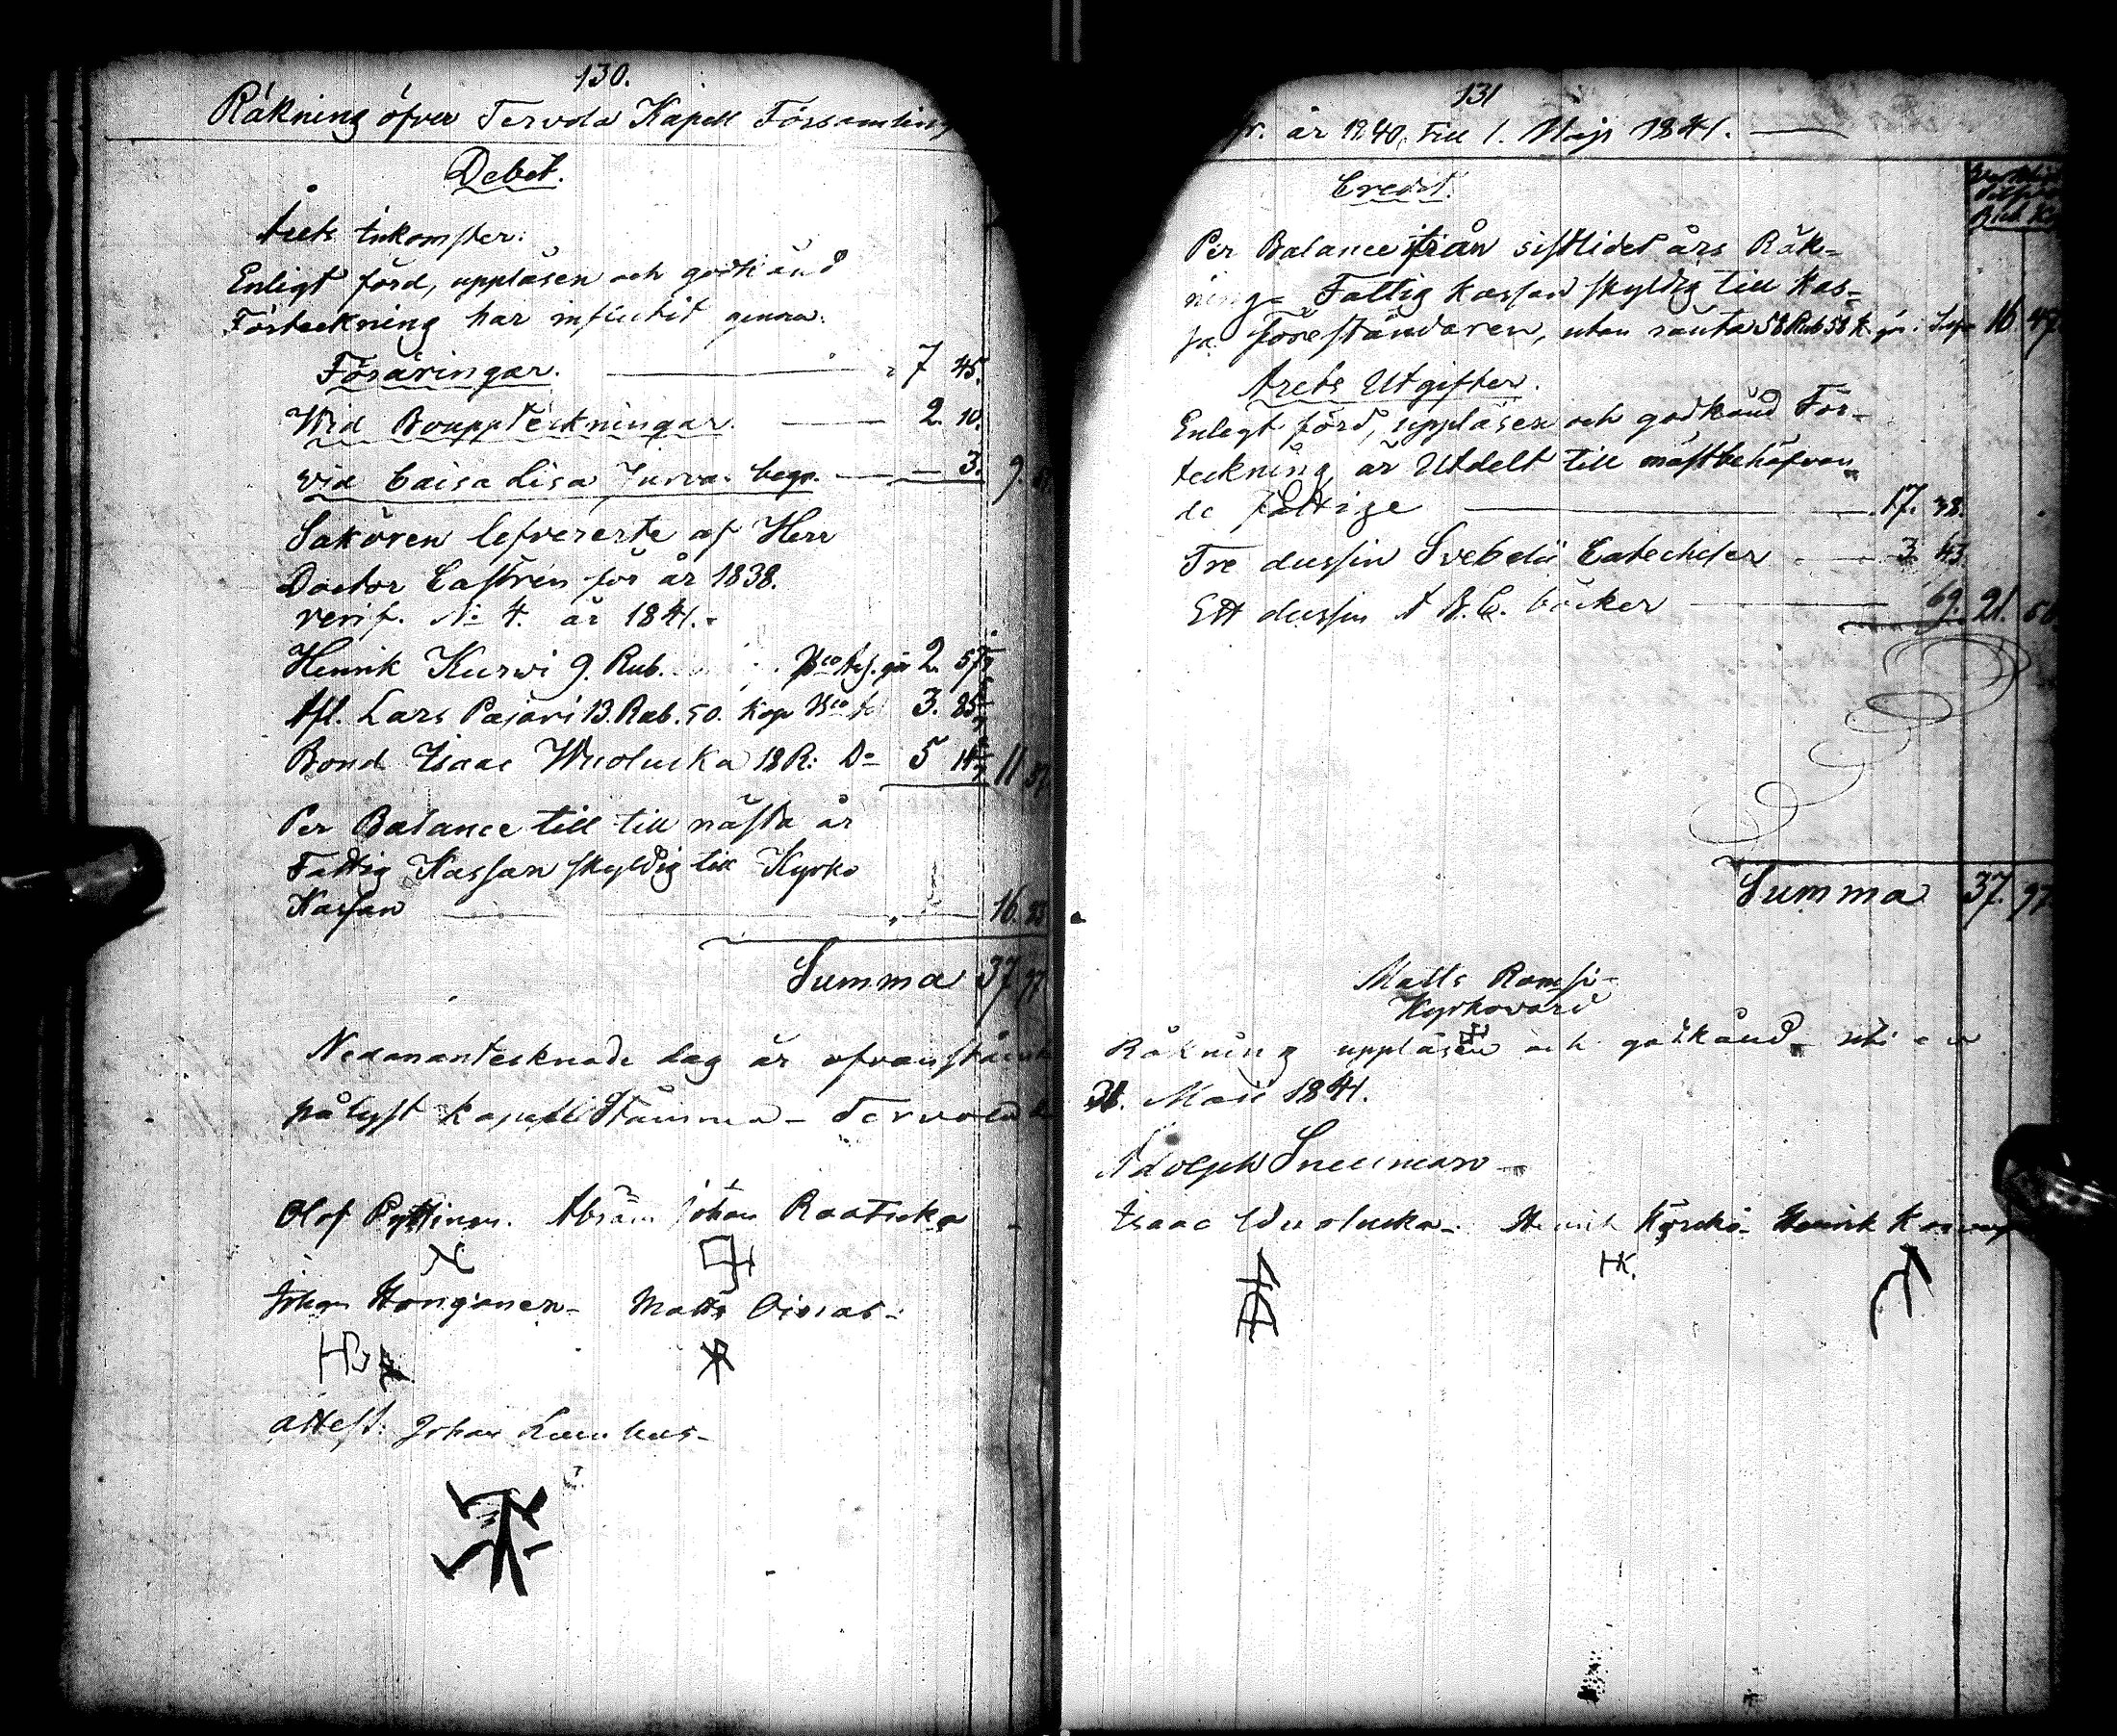 130.
Räkning öfver Tervola Kapell Församling
Debet.
Årets Inkomster:
Enligt förd, uppläsen och godkänd
Förteckning har influtit genom:
Föräringar. 7 45.
Wid Bouppteckningar. 2. 10.
wid Caisa Lisa Jurva begr. 3. 9.
Sakören lefvererte af Herr
Doctor Castrén för år 1838.
verif. N:o 4. år 1841.
Henrik Kurvi 9. Rub. gör 2. 57
Afl. Lars Pajari 13. Rub. 50. Kop 3. 85
Bond. Isaac Wuolucka 18 R: Do 5 14 11
Per Balance till till nästa år
Fattig Kassan skyldig till Kyrko
Kassan 16.
Summa 37 97
Nedanantecknade dag är ofvanståen
pålyst Kapell Stämma - Tervola
Olof Pyttinen. Abram Johan Raatucka
Johan Hongonen - Matts Oinas -
HJ
attest. Johan
131
fr. år 1840, till 1. Maji 1841.
Credit.
Per Balance från sistlidet års Räk-
ning - Fattig Kassan skyldig till Kas-
sa Föreståndaren, utan ränta 58 Rub 58 K gör 16 47
Årets Utgifter.
Enligt förd, uppläsen och godkänd För-
teckning, är Utdelt till mästbehöfvan
de fattige 17. 38.
Tre dussin Svebelii Catecheser 3 43.
Ett dussin A B. C. böcker 69. 21. 50
Summa 37. 97
Matts Romsi
Kyrkovärd
Räkning uppläsen och godkänd
31. Maii 1841.
Adolph Snellman
Isaac Wuolucka - Henrik Henrik
HK.